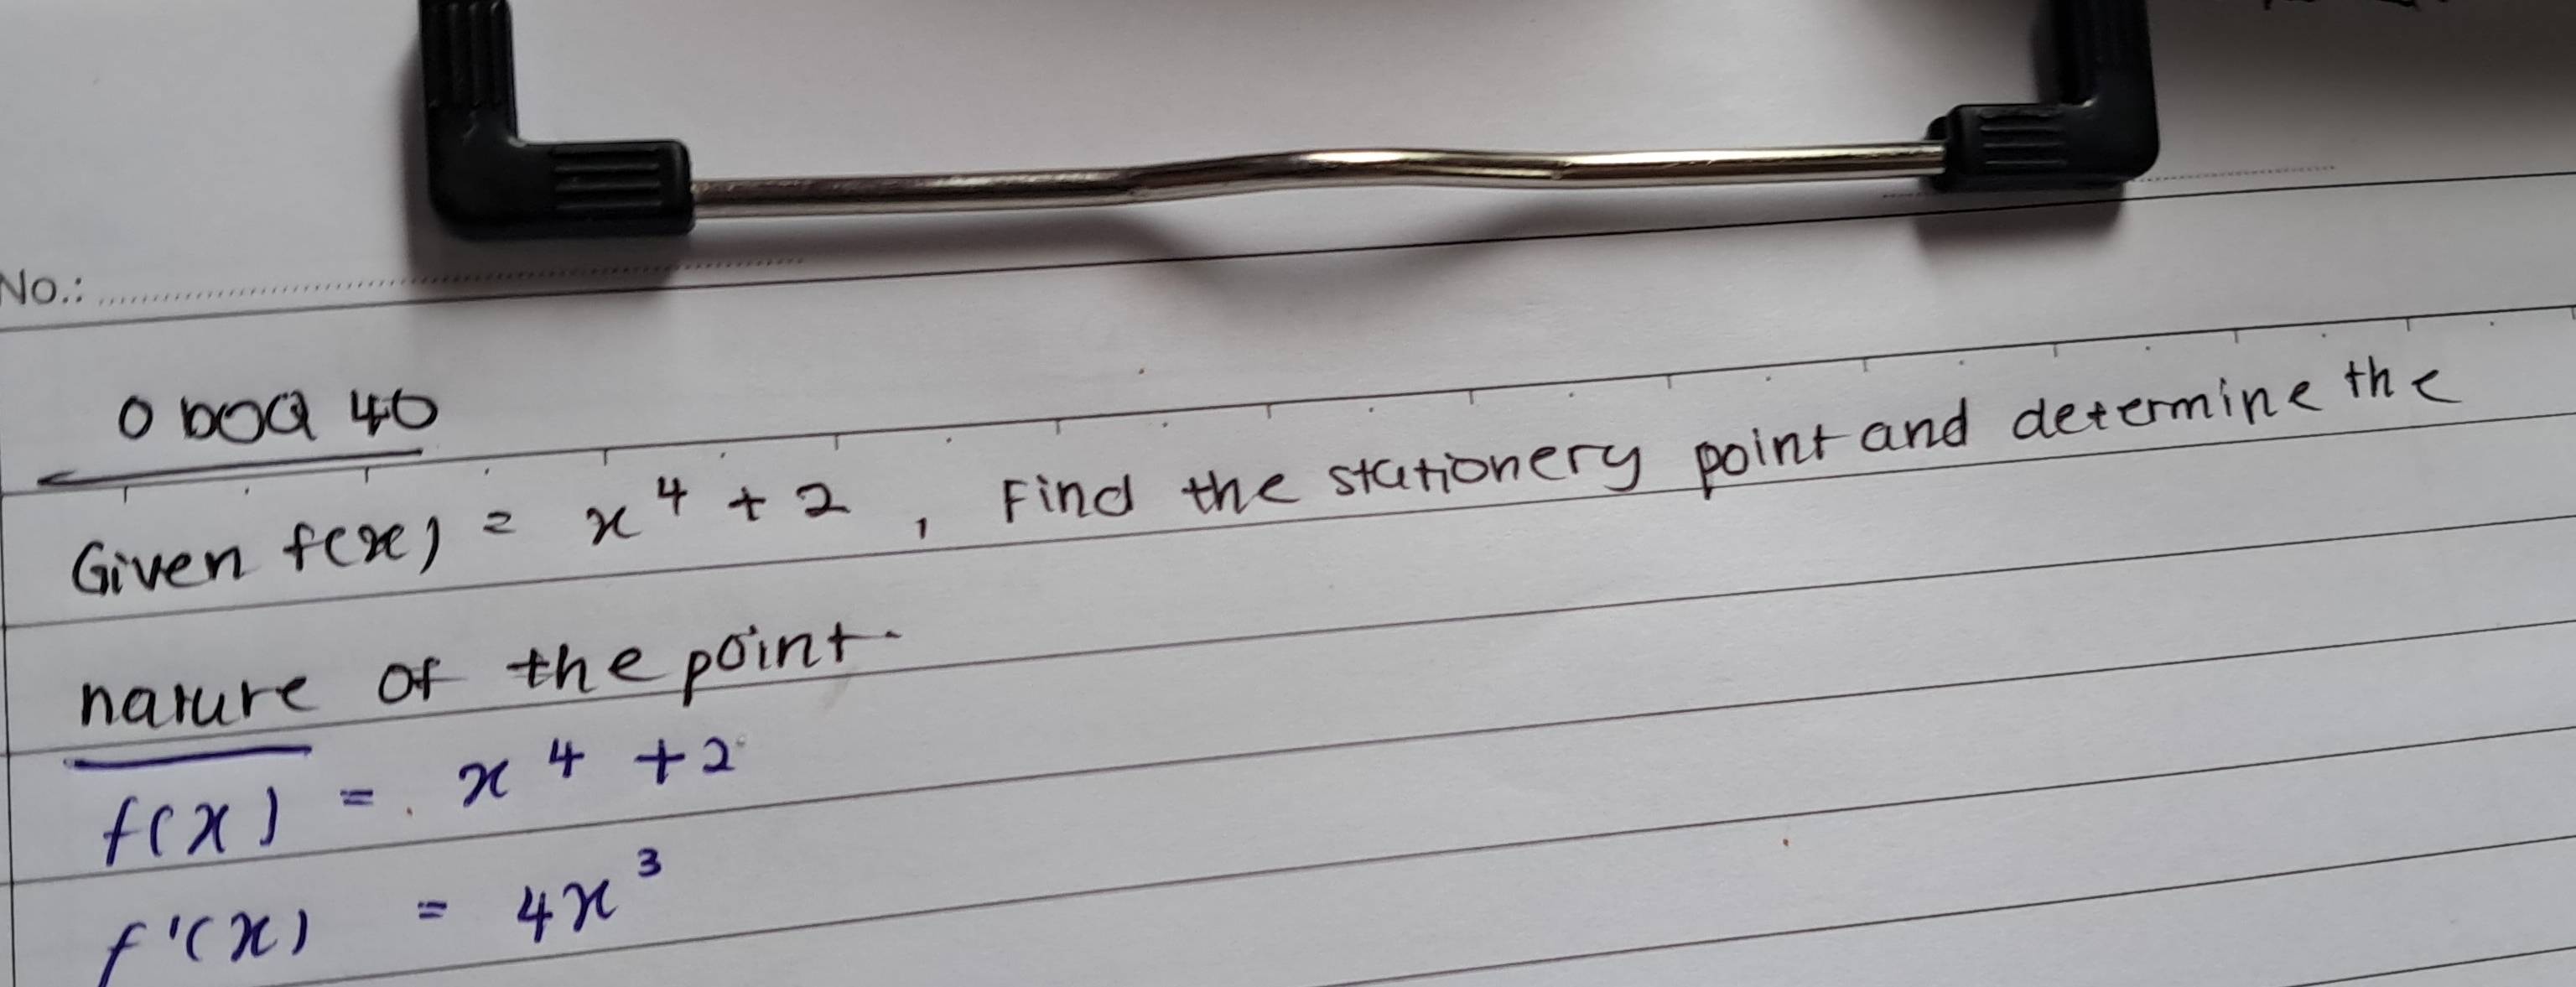 No.:
0 boa 40
Given f(x) = x⁴ + 2 , Find the stationery point and determine the
nature of the point.
f(x) = x⁴ + 2
f'(x) = 4x³